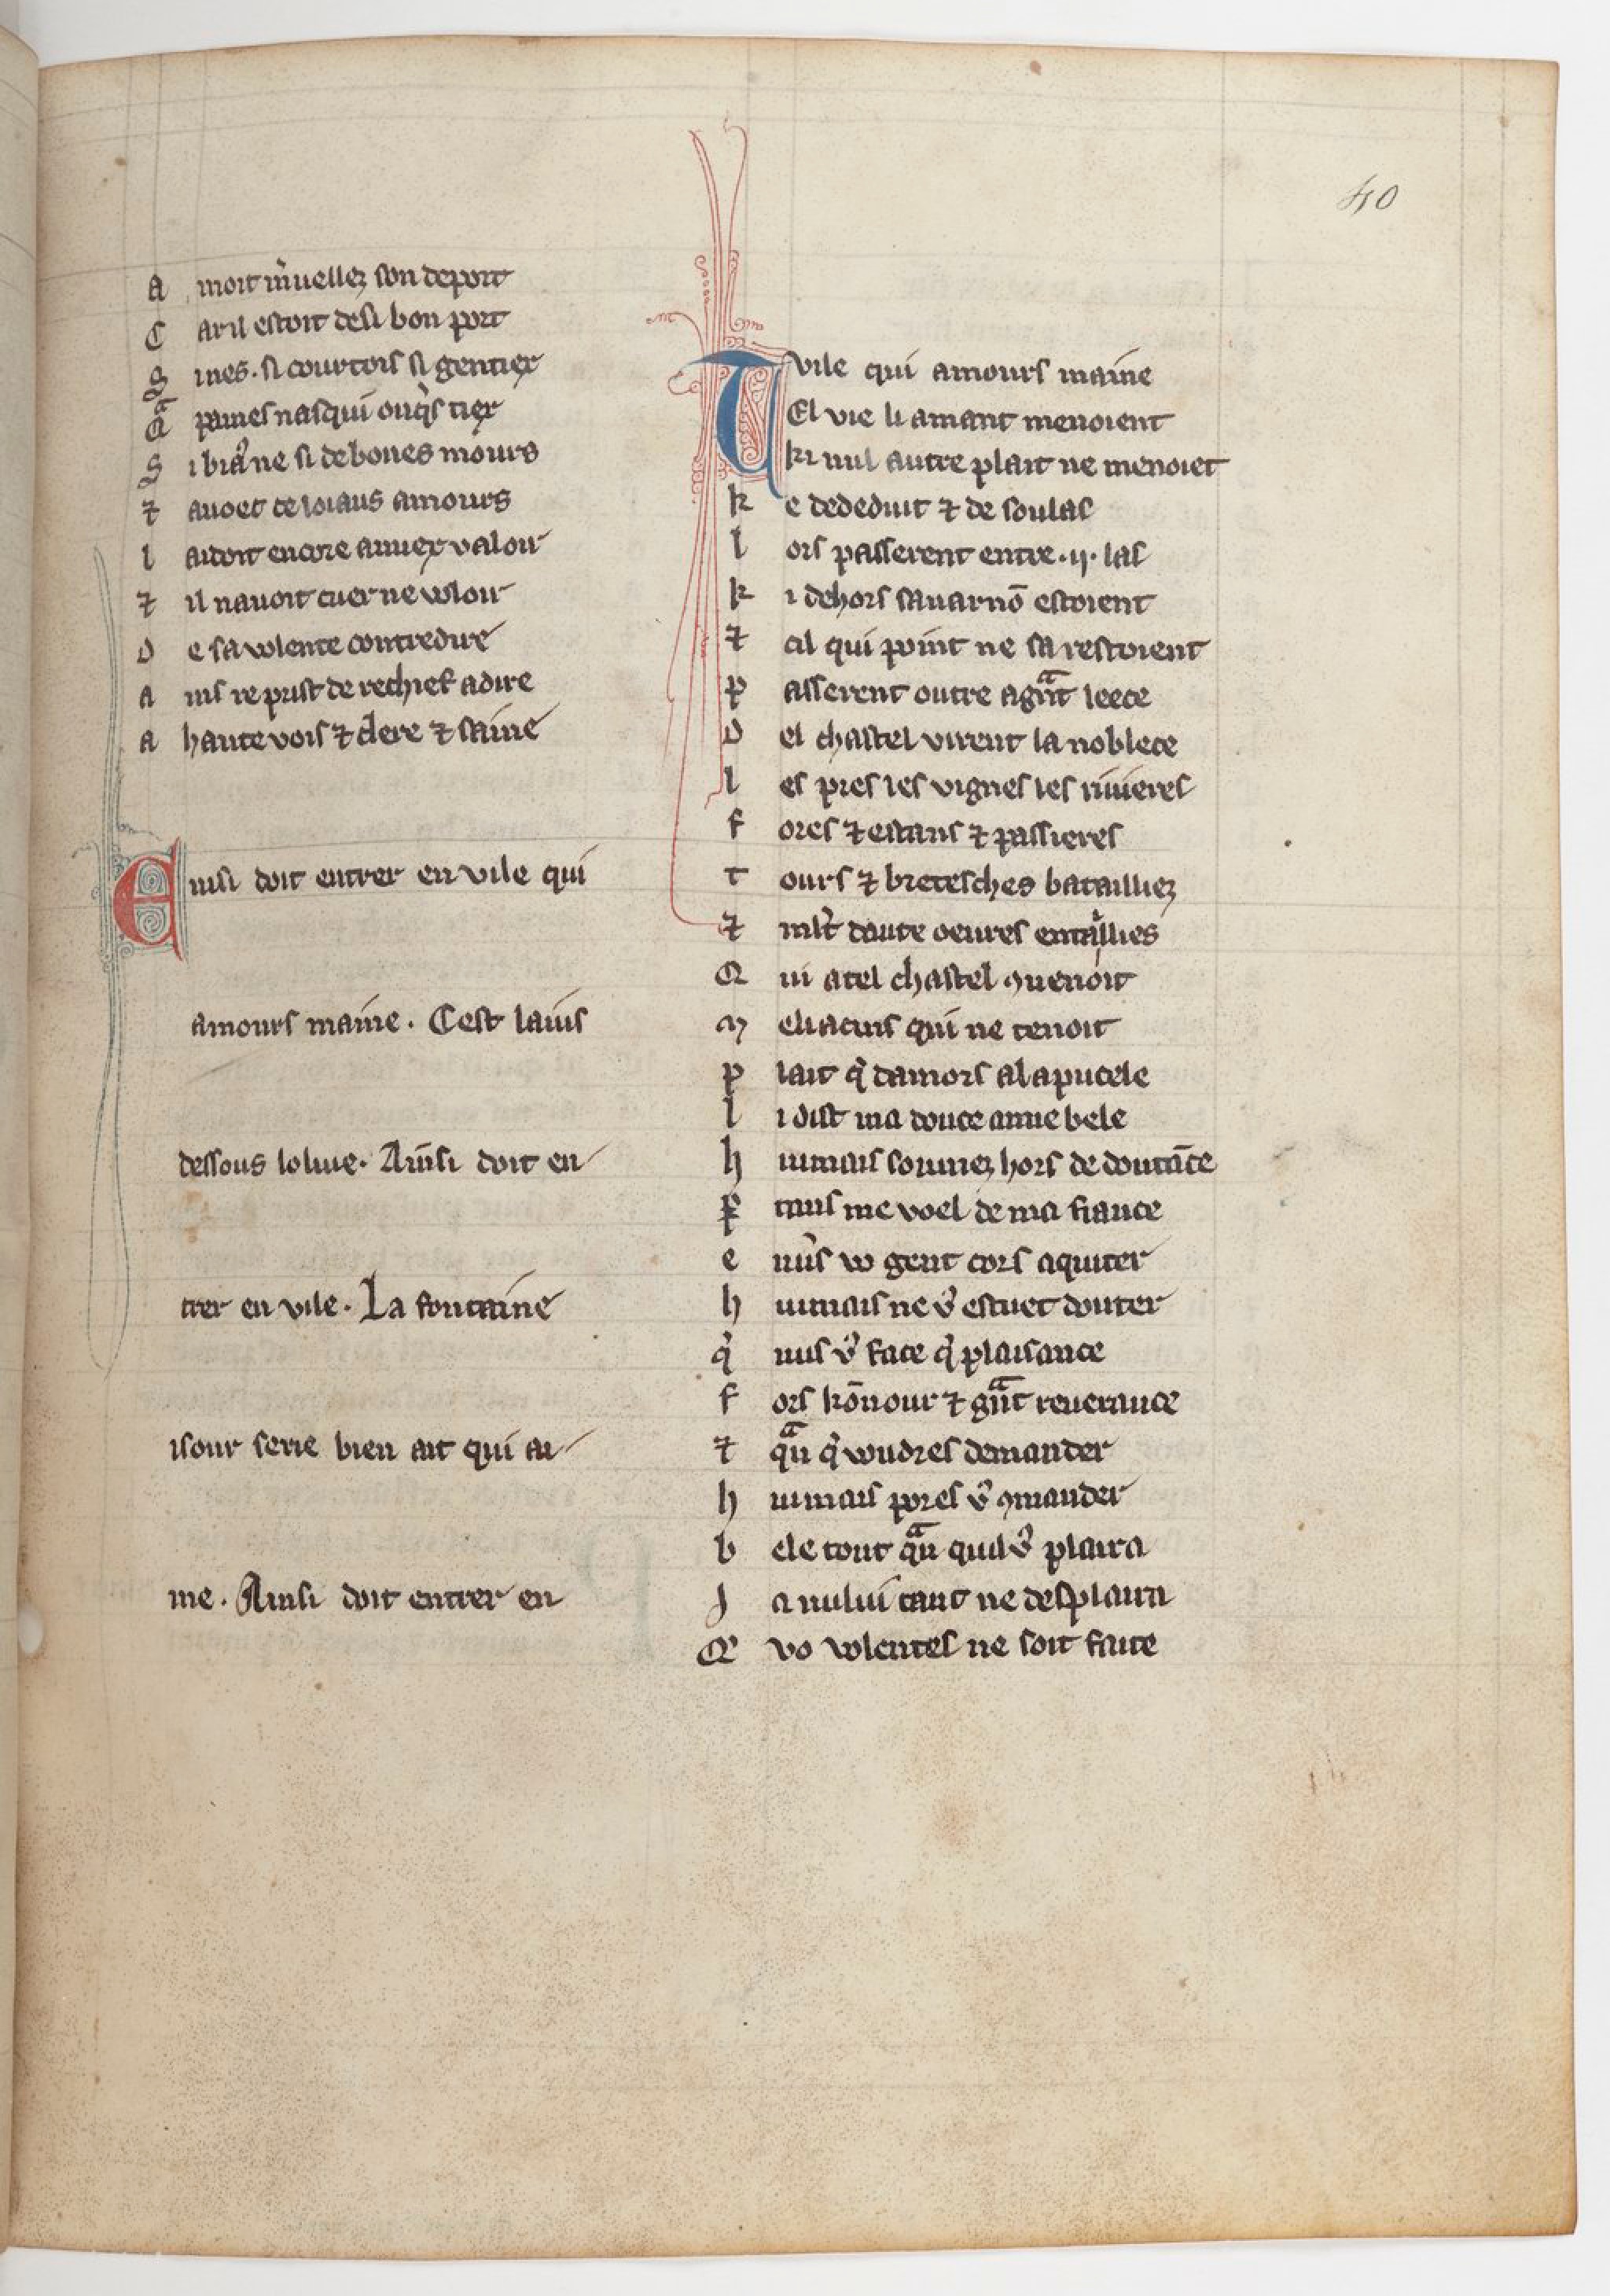 40
A mort m̾uellez son deport
C ar il estoit de si bon port
S ines . si courtois si gentiex
Qͣ paines nasqui onq̾s tiex
S i biaꝰ ne si de bones mours
⁊ auoec ce loiaus amours
l aidoit encore a miex valoir
⁊ il nauoit cuer ne voloir
D e sa volente contredire
A ins reprist de rechief a dire
A haute vois ⁊ clere ⁊ saine
Einsi doit entrer en vile qui
amours maine . Cest lauis
dessous loliue . Ainsi doit en
trer en vile . La fontaine
i sour serie bien ait qui ai
me . Ainsi doit entrer en
vile qui amours maine
TEl vie li amant menoient
ki nul autre plait ne menoiet
k e dededuit ⁊ de soulas
l ors passerent entre .ij. las
k i dehors sauarnō estoient
⁊ cil qui point ne sarestoient
p asserent outre a gͣnt leece
D el chastel virent la noblece
l es pres les vignes les riuieres
f ores ⁊ estans ⁊ passieres
t ours ⁊ bretesches batailliez
⁊ ml̾t daute oeures entaillies
Q ui a tel chastel ꝯuenoit
M eliacins qui ne tenoit
p lait q̾ damors a la pucele
l i dist ma douce amie bele
h uimais sommez hors de doutāce
P tans me voel de ma fiance
e nu̾s vo gent cors aquiter
h uimais ne vꝰ estuet douter
q̾ nus vꝰ face q̾ plaisance
f ors hōnour ⁊ gͣnt reuerance
⁊ qͣn q̾ voudres demander
h uimais pores vꝰ ꝯmander
b ele tout qͣn quil vꝰ plaira
J a nului tant ne desplaira
Q̾ vo volentes ne soit faite